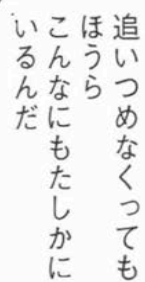 追いつめなくっても
ほうら
こんなにもたしかに
いるんだ